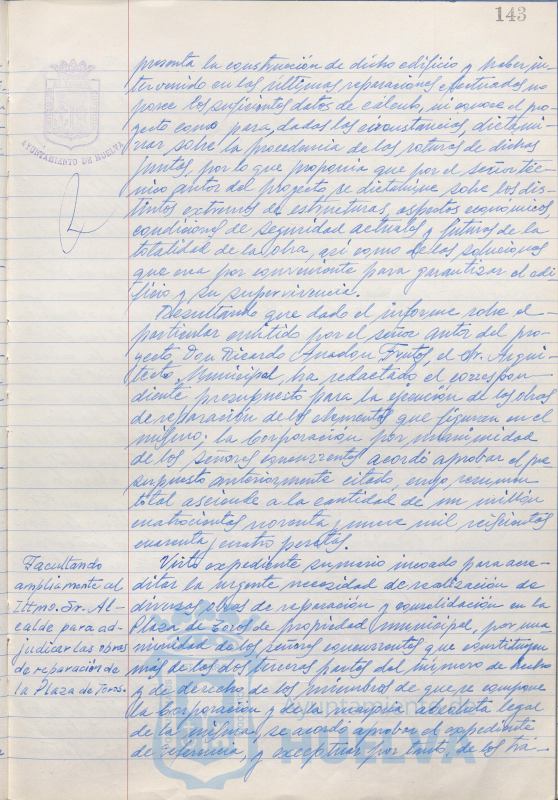 143
AYUNTAMIENTO DE HUELVA
presenta la construcción de dicho edificio y haber in-
tervenido en las últimas reparaciones efectuadas no
posee los suficientes datos de cálculo, ni conoce el pro-
yecto como para, dadas las circunstancias, dictami-
nar sobre la procedencia de las roturas de dichas
juntas, por lo que proponía que por el señor téc-
nico autor del proyecto se dictamine sobre los dis-
tintos extremos de estructuras, aspectos económicos
condiciones de seguridad actuales y futuras de la
totalidad de la obra, así como de las soluciones
que crea por conveniente para garantizar el edi-
ficio y su supervivencia.
Resultando que dado el informe sobre el
particular emitido por el señor autor del pro-
yecto, Don Ricardo Anadon Frutos, el Sr. Arqui-
tecto Municipal, ha redactado el correspon-
diente presupuesto para la ejecución de las obras
de reparación de los elementos que figuran en el
mismo; la Corporación por unanimidad
de los señores concurrentes acordó aprobar el pre
supuesto anteriormente citado, cuyo resumen
total asciende a la cantidad de un millón
cuatrocientas noventa y nueve mil seiscientas
cuarenta y cuatro pesetas.
Facultando
ampliamente al
Iltmo. Sr. Al-
calde para ad-
judicar las obras
de reparación de
la Plaza de Toros.
Visto expediente sumario incoado para acre-
ditar la urgente necesidad de realización de
diversas obras de reparación y consolidación en la
Plaza de Toros de propiedad municipal, por una-
nimidad de los señores concurrentes que constituyen
más de las dos terceras partes del número de hecho
y de derecho de los miembros de que se compone
la Corporación y de la mayoría absoluta legal
de la misma, se acordó aprobar el expediente
de referencia, y exceptuar por tanto, de los trá-
Ayuntamiento de
HUELVA